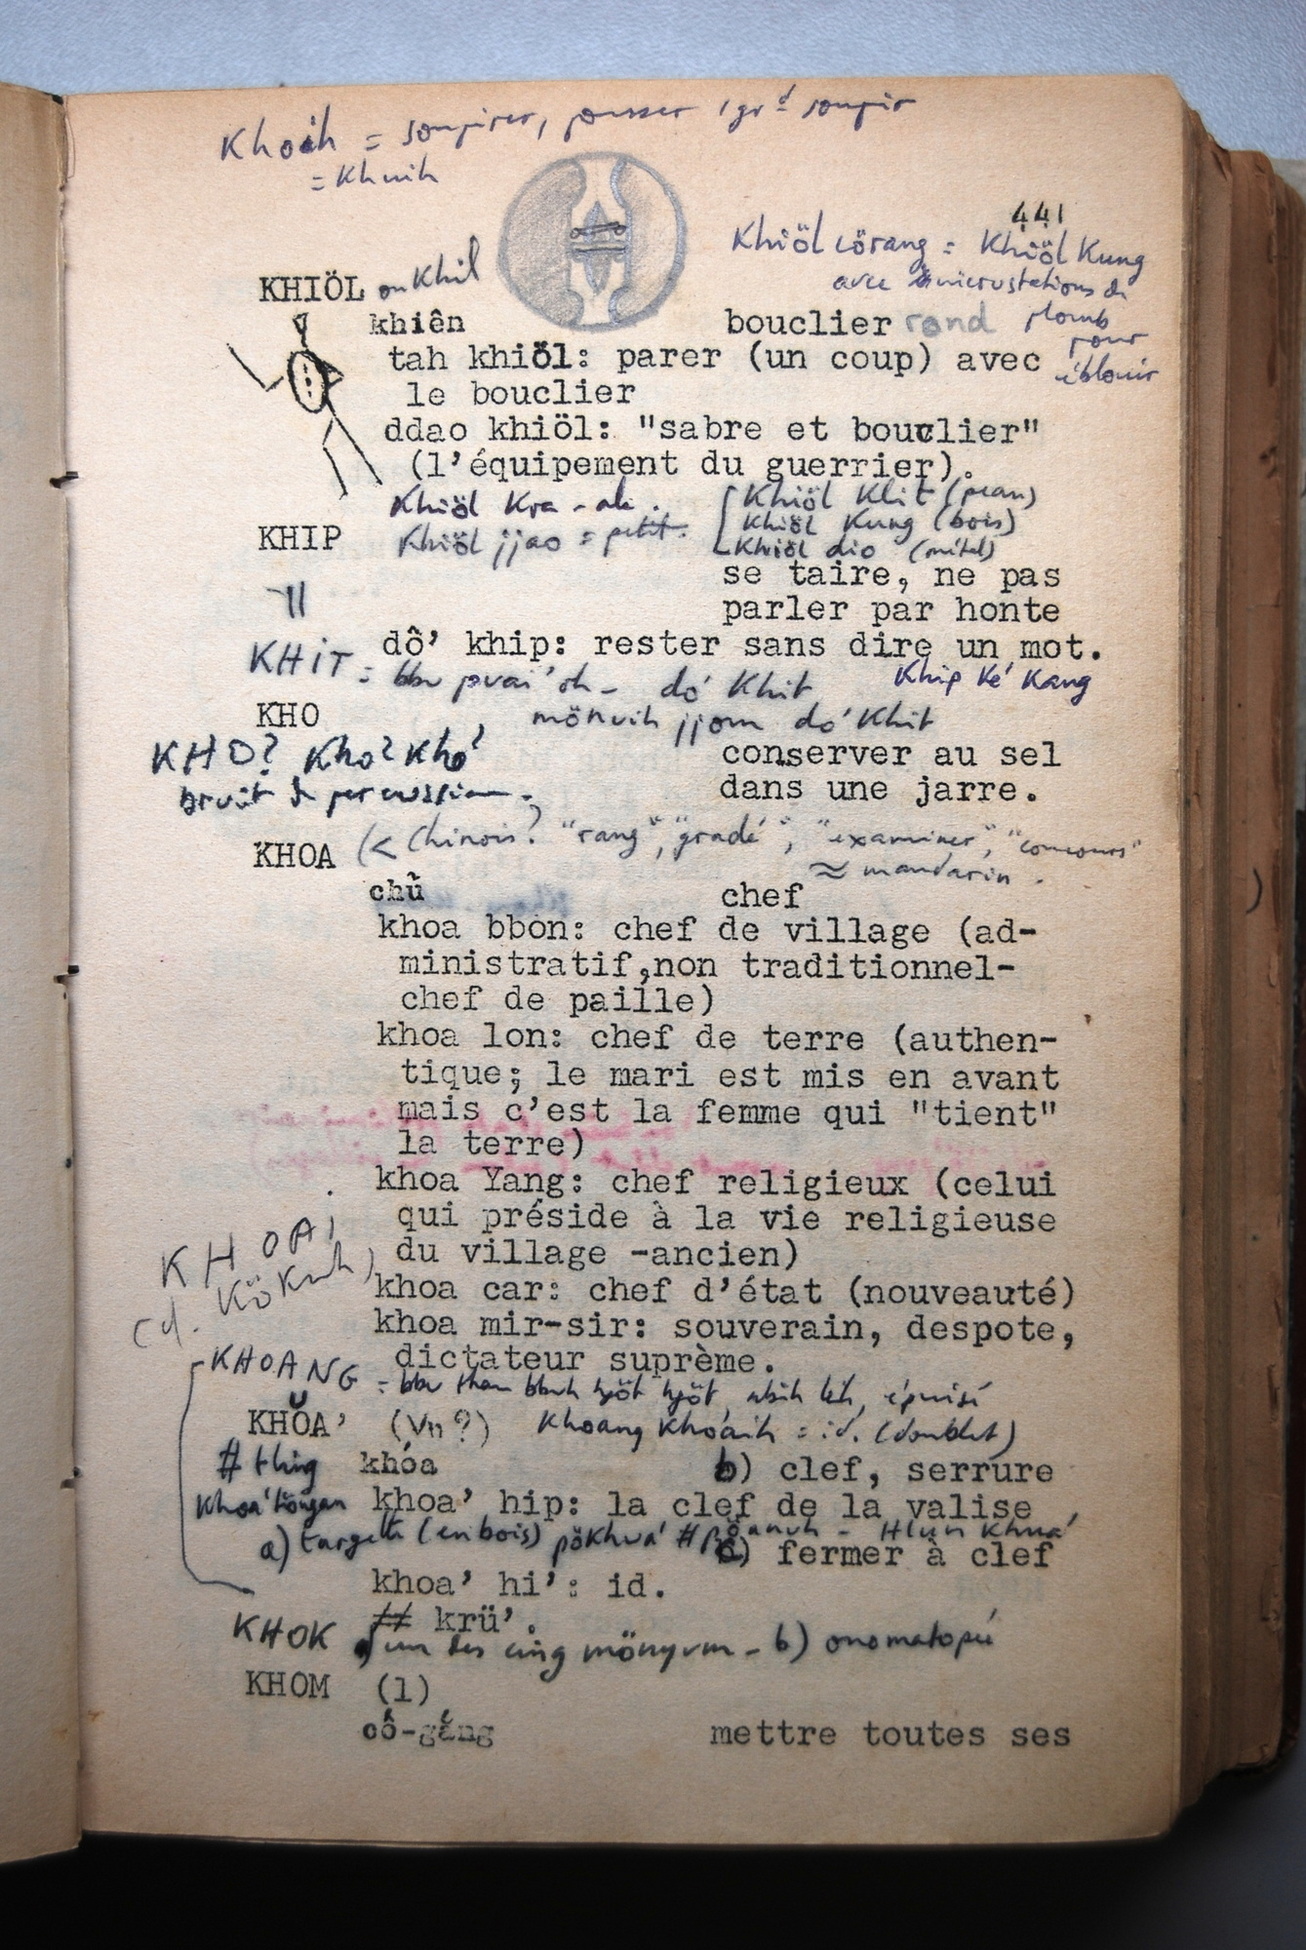 Khoih = soupirer, pousser 1 grd soupir
= Khuih
441
Khiöl cörang = Khiöl Kung
avec incrustations de
plomb
pour
éblouir
KHIÖL ou Khil
khiên bouclier rond
tah khiöl: parer (un coup) avec
le bouclier
ddao khiöl: "sabre et bouclier"
(l'équipement du guerrier).
Khiöl Kra-ak. Khiöl Klit (peau)
Khiöl jjao = petit. Khiöl Kung (bois)
Khiöl dio (métal)
KHIP
se taire, ne pas
parler par honte
dô' khip: rester sans dire un mot.
KHIT = bbu dó Khit Khip Ké Kang
mönuih jjom dó Khit
KHO
conserver au sel
dans une jarre.
KHO? Kho? Kho?
bruit de percussion.
KHOA (< Chinois? "rang", "gradé", "examiner", "concours"
≈ mandarin.
chủ chef
khoa bbon: chef de village (ad-
ministratif,non traditionnel-
chef de paille)
khoa lon: chef de terre (authen-
tique; le mari est mis en avant
mais c'est la femme qui "tient"
la terre)
khoa Yang: chef religieux (celui
qui préside à la vie religieuse
du village -ancien)
khoa car: chef d'état (nouveauté)
khoa mir-sir: souverain, despote,
dictateur suprème.
KHOAI
KHOANG = bbu épuisé
Khoang = id. (doublet)
KHŎA' (Vn?)
khóa b) clef, serrure
khoa' hip: la clef de la valise
a) (en bois) pökhua'
c) fermer à clef
khoa' hi': id.
## krü'.
KHOK un des cinq b) onomatopée
KHOM (1)
cố-gắng mettre toutes ses